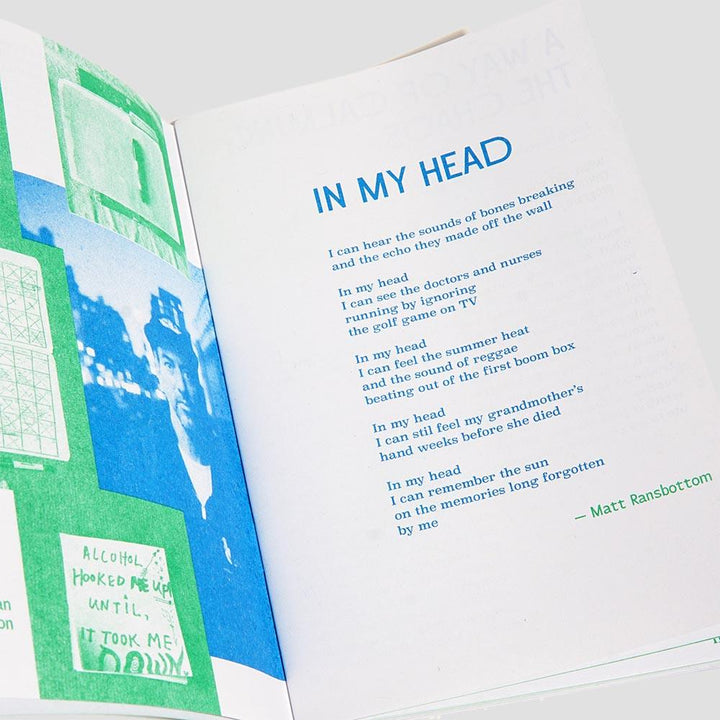 ALCOHOL
HOOKED ME UP
UNTIL,
IT TOOK ME
DOWN
IN MY HEAD
I can hear the sounds of bones breaking
and the echo they made off the wall
In my head
I can see the doctors and nurses
running by ignoring
the golf game on TV
In my head
I can feel the summer heat
and the sound of reggae
beating out of the first boom box
In my head
I can stil feel my grandmother's
hand weeks before she died
In my head
I can remember the sun
on the memories long forgotten
by me
— Matt Ransbottom